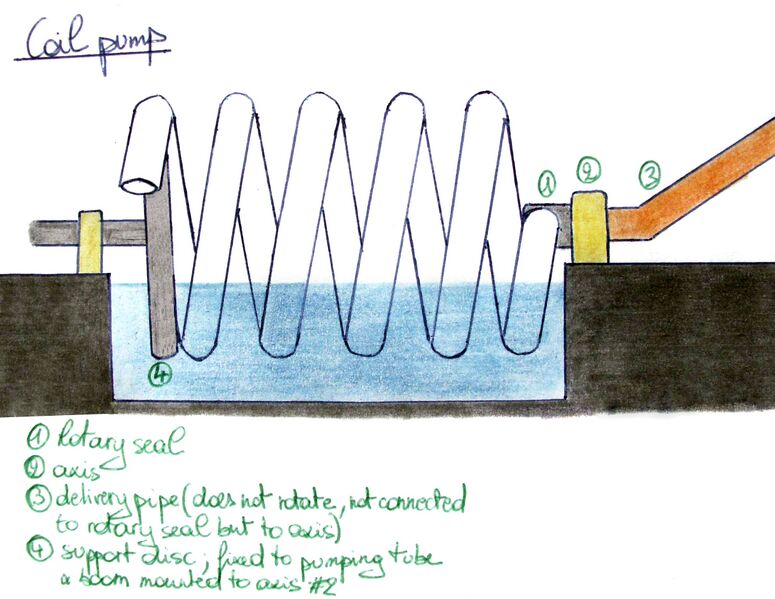 Coil pump
1 2 3
4
① Rotary seal
② axis
③ delivery pipe (does not rotate, not connected
to rotary seal but to axis)
④ support disc, fixed to pumping tube
& boom mounted to axis #2